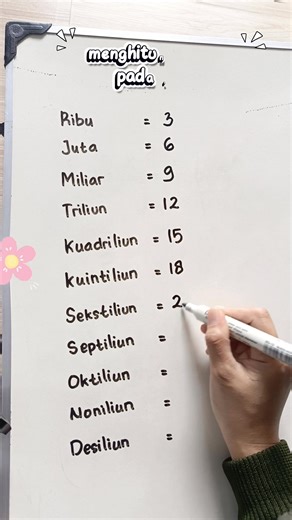 menghitu
pada
Ribu = 3
Juta = 6
Miliar = 9
Triliun = 12
Kuadriliun = 15
Kuintiliun = 18
Sekstiliun = 2
Septiliun =
Oktiliun =
Noniliun =
Desiliun =